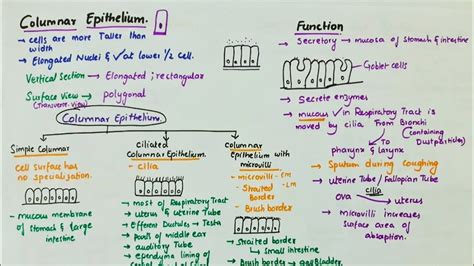 Columnar Epithelium.
→ cells are more Taller than
width
→ Elongated Nuclei & ✓ at lower ½ cell.
Vertical Section → Elongated ; rectangular
Surface View → polygonal
(Transverse View)
Columnar Epithelium.
Simple Columnar
Cell Surface has
no specialisation.
→ mucous membrane
of Stomach & large
intestine
Ciliated
Columnar Epithelium.
- cilia
→ most of Respiratory Tract
→ uterus & uterine Tube
→ Efferent Ductules - Testis
→ parts of middle ear
→ auditory Tube
→ ependyma lining of
Columnar
Epithelium with
microvilli
- microvilli - EM
- Striated - LM
Border
- Brush border
→ Striated border
↳ Small intestine
→ Brush border → gallBladder
Function
→ Secretory → mucosa of stomach & intestine
Goblet cells
→ Secrete enzymes
→ mucous ✓ in Respiratory Tract is
moved by cilia From Bronchi
(Containing
Dust particles)
To
pharynx & larynx
→ Sputum during coughing
→ uterine Tube / Fallopian Tube
cilia
ova → uterus
→ microvilli increases
Surface area of
absorption.